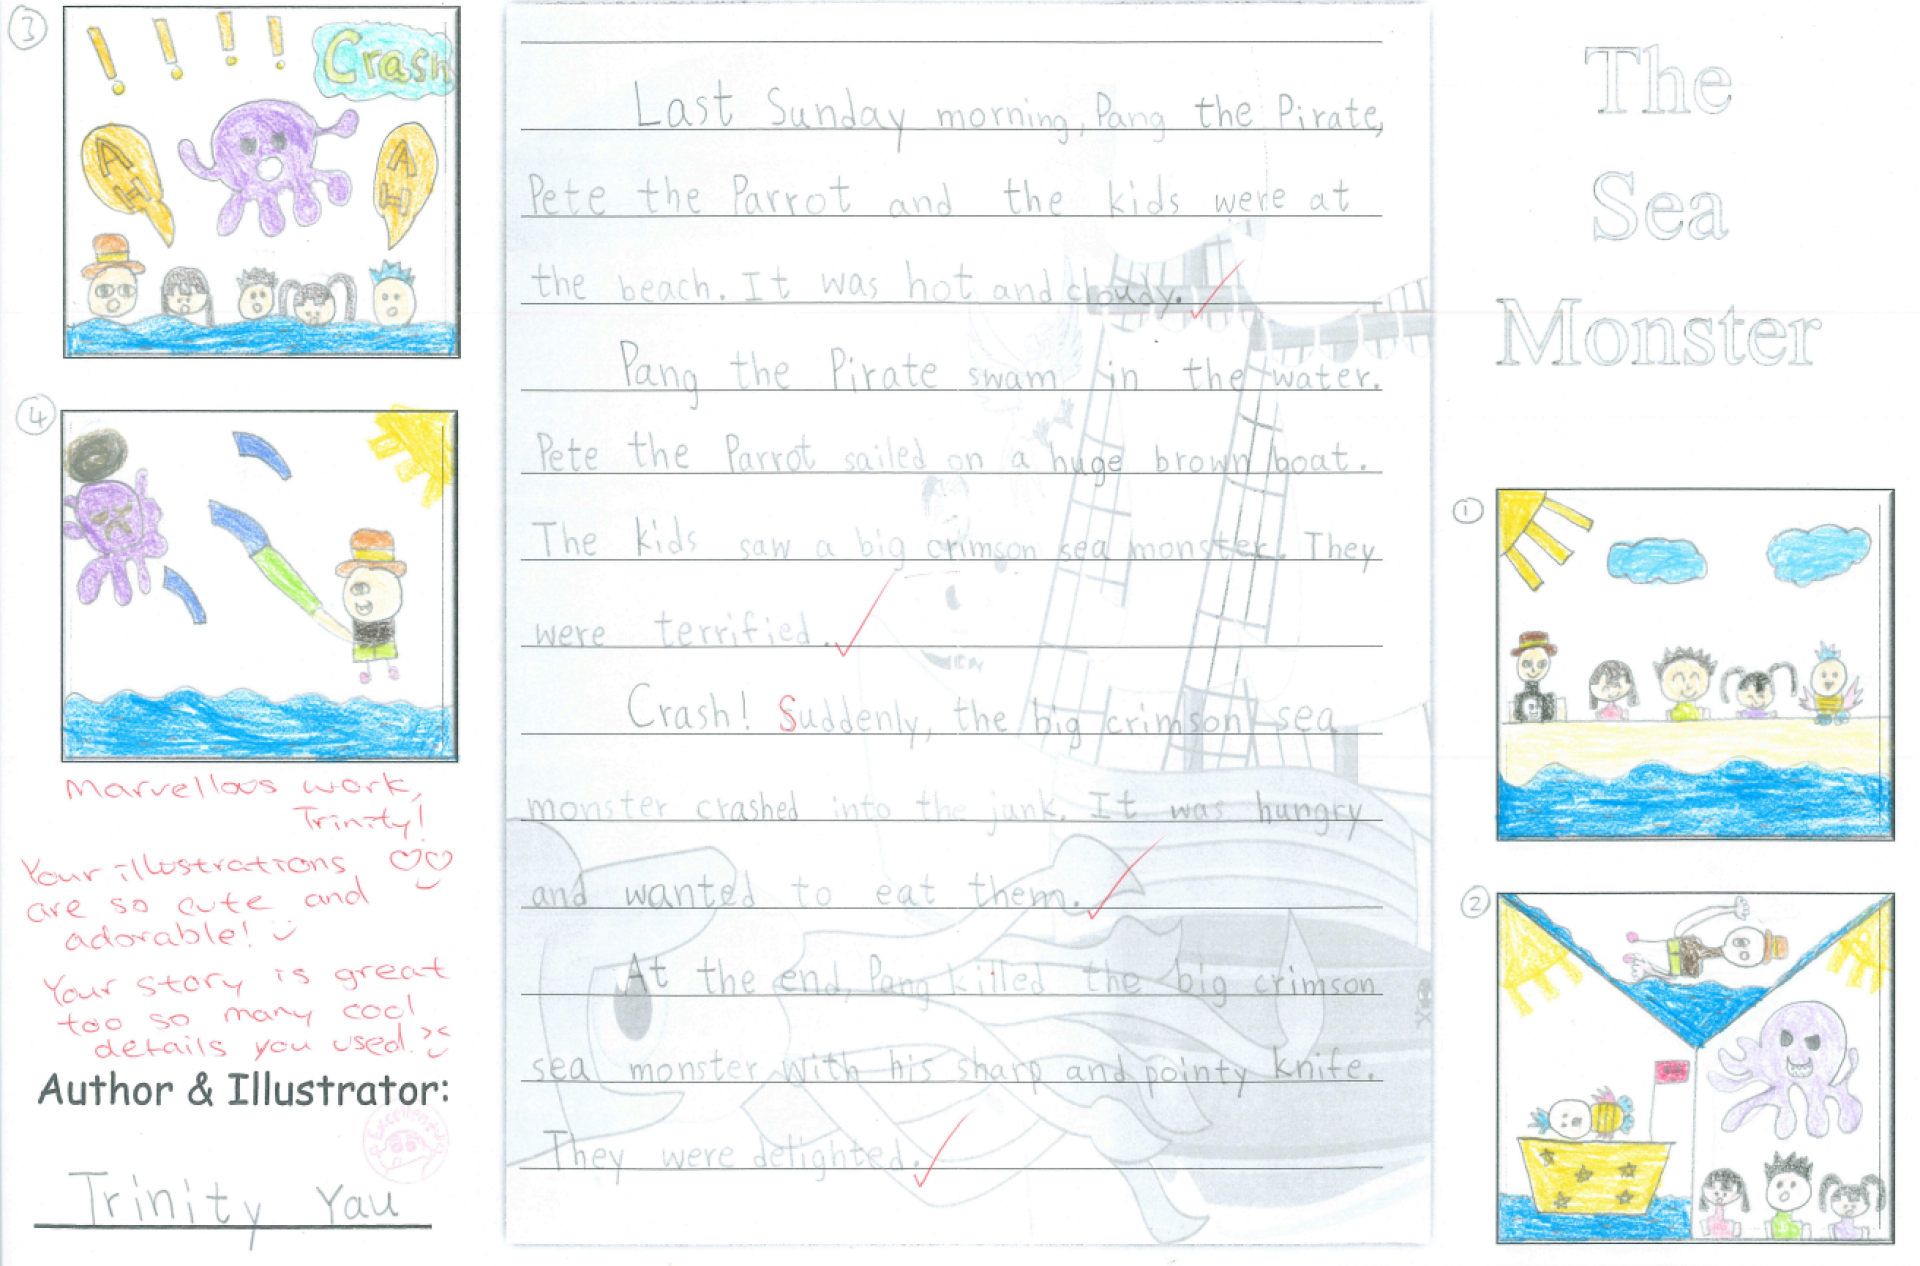 3
Crash
AH
AH
4
Marvellous work,
Trinity!
Your illustrations
are so cute and
adorable!
Your story is great
too so many cool
details you used.
Author & Illustrator:
Excellent
Trinity Yau
Last Sunday morning, Pang the Pirate,
Pete the Parrot and the kids were at
the beach. It was hot and cloudy.
Pang the Pirate swam in the water.
Pete the Parrot sailed on a huge brown boat.
The kids saw a big crimson sea monster. They
were terrified.
Crash! Suddenly, the big crimson sea
monster crashed into the junk. It was hungry
and wanted to eat them.
At the end, Pang killed the big crimson
sea monster with his sharp and pointy knife.
They were delighted.
The
Sea
Monster
1
2